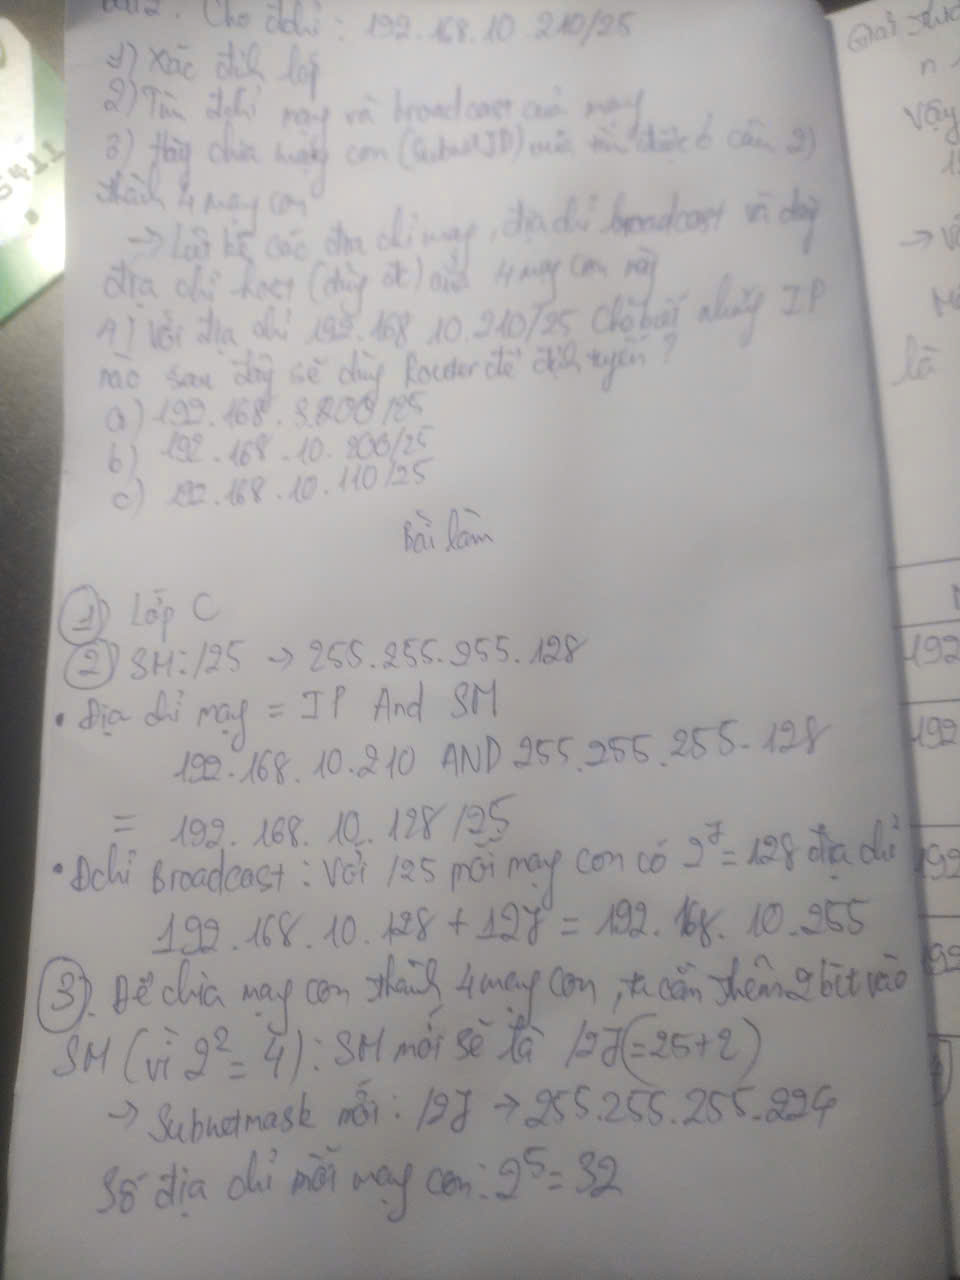 Bài 2. Cho đchỉ: 192.168.10.210/25
1) Xác định lớp
2) Tìm đchỉ mạng và broadcast của mạng
3) Hãy chia mạng con (SubnetID) mà tìm được ở câu 2)
thành 4 mạng con
→ Liệt kê các địa chỉ mạng, địa chỉ broadcast và dãy
địa chỉ host (dùng đc) của 4 mạng con này
4) Với địa chỉ 192.168.10.210/25 Cho biết những IP
nào sau đây sẽ dùng Router để định tuyến?
a) 192.168.3.200/25
b) 192.168.10.200/25
c) 192.168.10.110/25
Bài làm
1) Lớp C
2) SM: /25 → 255.255.255.128
• Địa chỉ mạng = IP And SM
192.168.10.210 AND 255.255.255.128
= 192.168.10.128/25
• Đchỉ Broadcast: Với /25 mỗi mạng con có 2^7 = 128 địa chỉ
192.168.10.128 + 127 = 192.168.10.255
3). Để chia mạng con thành 4 mạng con, ta cần thêm 2 bit vào
SM (vì 2^2 = 4): SM mới sẽ là /27 (=25+2)
→ Subnetmask mới: /27 → 255.255.255.224
Số địa chỉ mỗi mạng con: 2^5 = 32
5411
n
Vậy
→
là
192
192
192
192